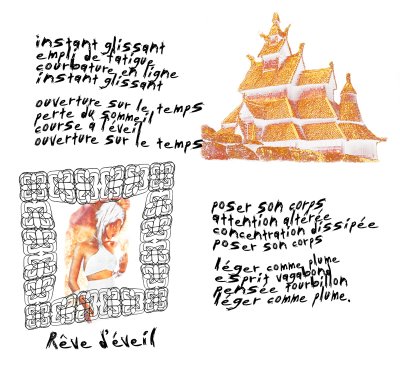 instant glissant
empli de fatigue
courbature en ligne
instant glissant
ouverture sur le temps
perte du sommeil
course à l'éveil
ouverture sur le temps
poser son corps
attention altérée
concentration dissipée
poser son corps
léger comme plume
esprit vagabond
pensée tourbillon
léger comme plume.
Rêve d'éveil